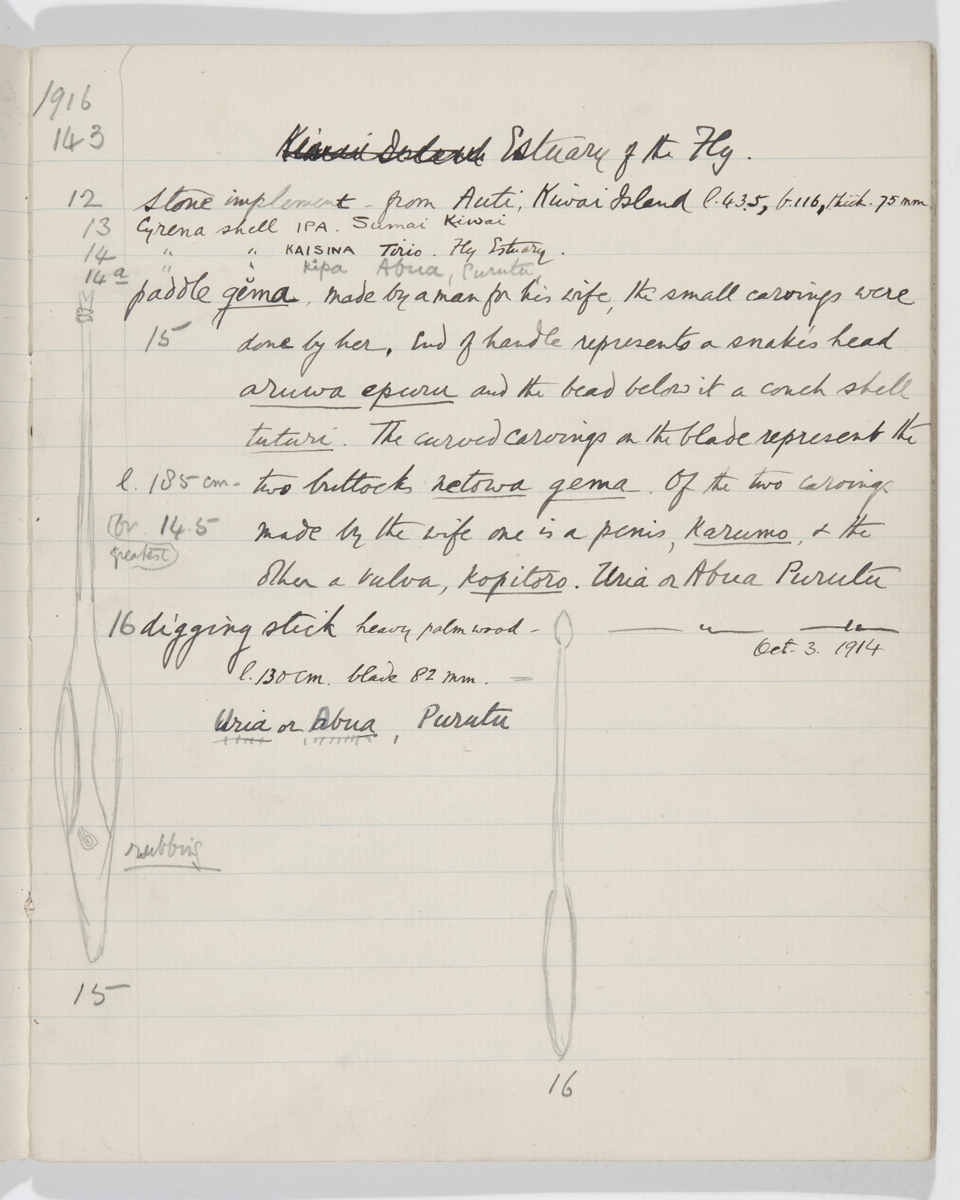 1916
143
~~Kiwai Island~~ Estuary of the Fly.
12 stone implement - from Auti, Kiwai Island l. 435, b. 116, thick. 75 mm.
13 Cyrena shell IPA. Sumai Kiwai
14 " " KAISINA Tirio. Fly Estuary.
14a " " Kipa Abua, Purutu
paddle gema, made by a man for his wife, the small carvings were
15 done by her. End of handle represents a snake's head
aruwa epuru and the bead below it a conch shell
tuturi. The curved carvings on the blade represent the
l. 185 cm - two buttocks netowa gema. Of the two carvings
(br. 14.5 made by the wife one is a penis, Karumo, & the
greatest)
other a vulva, Kopitoro. Uria or Abua Purutu
16 digging stick heavy palm wood - — " — — " —
Oct. 3. 1914
l. 130 cm. blade 82 mm. =
Uria or Abua, Purutu
rubbing
15
16